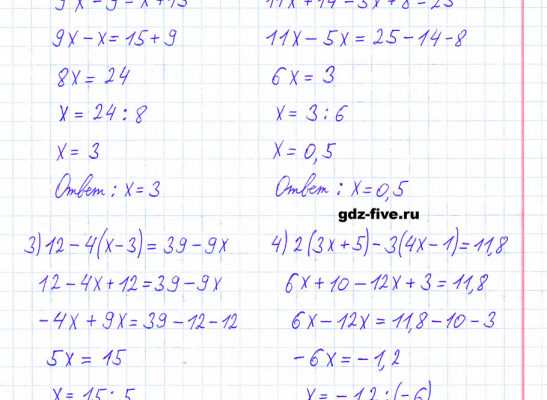 9x - 9 = x + 15
9x - x = 15 + 9
8x = 24
x = 24 : 8
x = 3
Ответ: x = 3
11x - 5x = 25 - 14 - 8
6x = 3
x = 3 : 6
x = 0,5
Ответ: x = 0,5
gdz-five.ru
3) 12 - 4(x - 3) = 39 - 9x
12 - 4x + 12 = 39 - 9x
-4x + 9x = 39 - 12 - 12
5x = 15
x = 15 : 5
4) 2(3x + 5) - 3(4x - 1) = 11,8
6x + 10 - 12x + 3 = 11,8
6x - 12x = 11,8 - 10 - 3
-6x = -1,2
x = -1,2 : (-6)